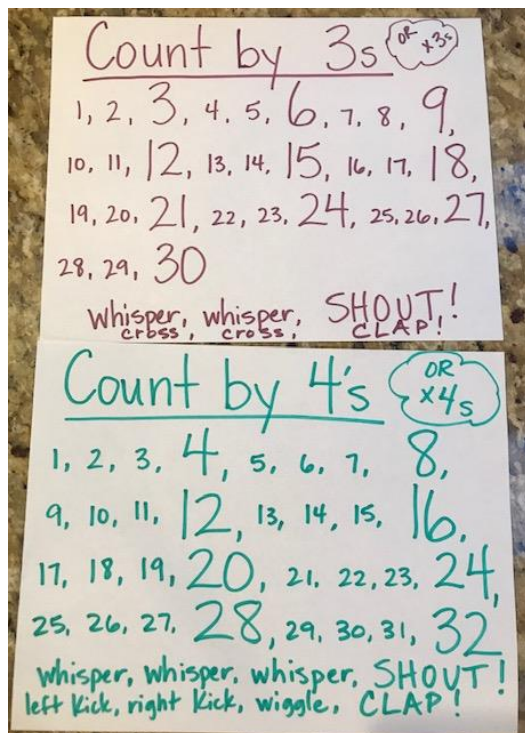 Count by 3s
OR
x3s
1, 2, 3, 4, 5, 6, 7, 8, 9,
10, 11, 12, 13, 14, 15, 16, 17, 18,
19, 20, 21, 22, 23, 24, 25, 26, 27,
28, 29, 30
whisper, whisper, SHOUT!
cross, cross, CLAP!
Count by 4's
OR
x4s
1, 2, 3, 4, 5, 6, 7, 8,
9, 10, 11, 12, 13, 14, 15, 16,
17, 18, 19, 20, 21, 22, 23, 24,
25, 26, 27, 28, 29, 30, 31, 32
whisper, whisper, whisper, SHOUT!
left kick, right kick, wiggle, CLAP!